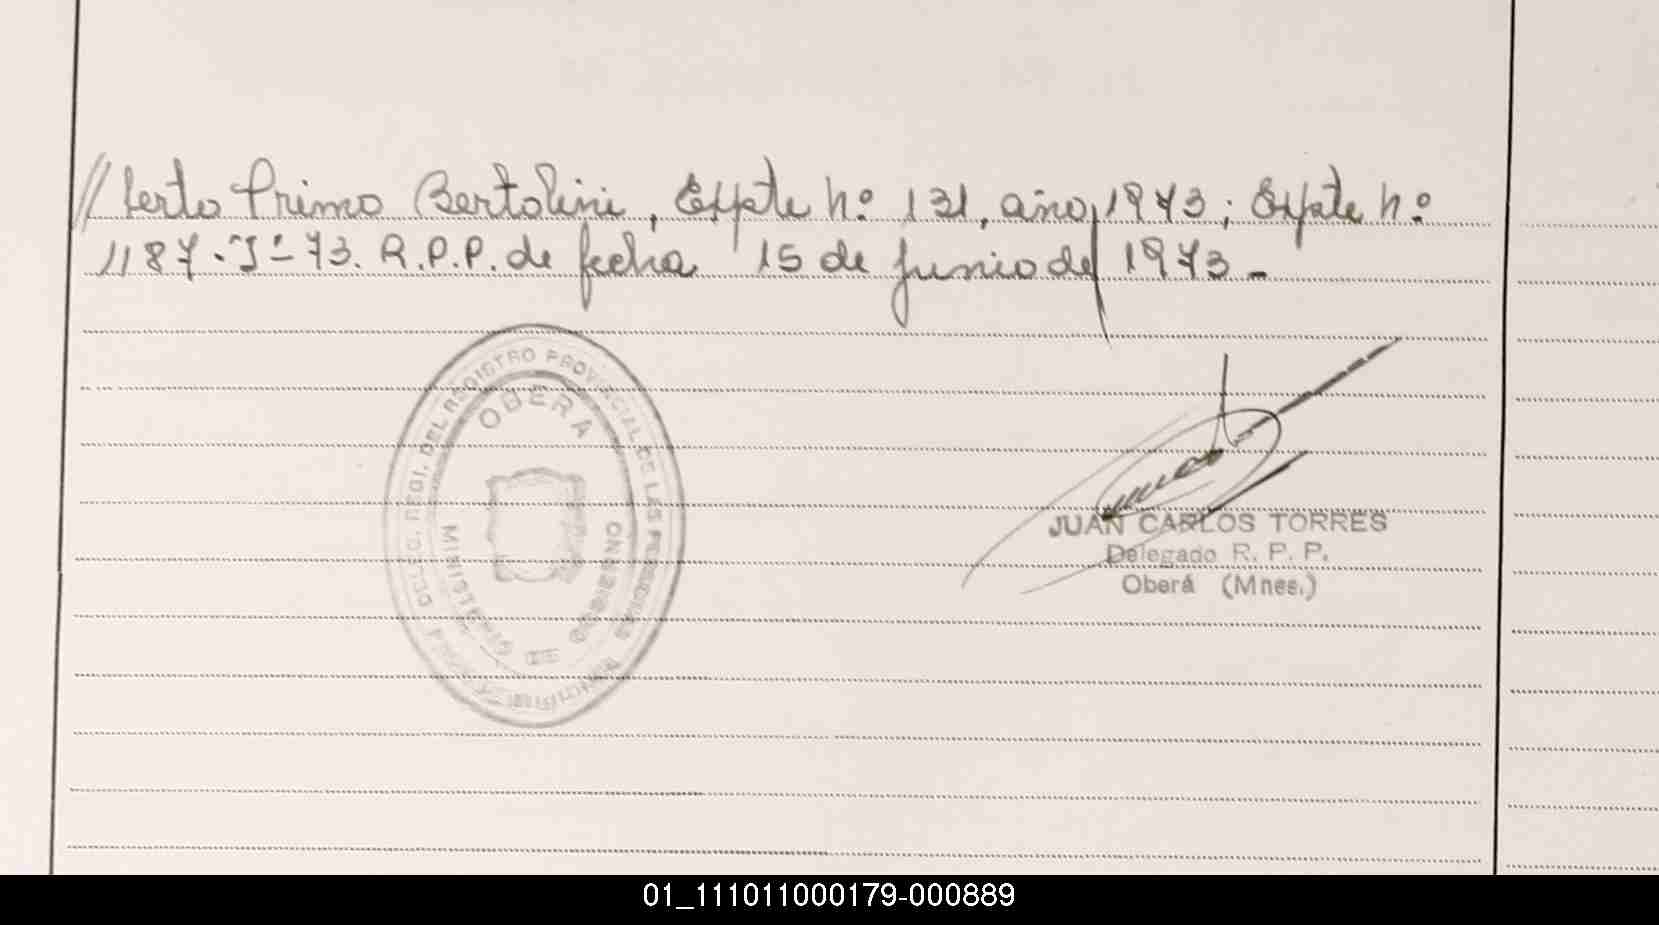 //berto Primo Bertolini, Expte nº 131, año 1973; Expte nº
1187-J-73. R.P.P. de fecha 15 de junio de 1973.-
DELEG. REGI. DEL REGISTRO PROVINCIAL DE LAS PERSONAS
OBERA
MINISTERIO DE GOBIERNO
JUAN CARLOS TORRES
Delegado R. P. P.
Oberá (Mnes.)
01_111011000179-000889